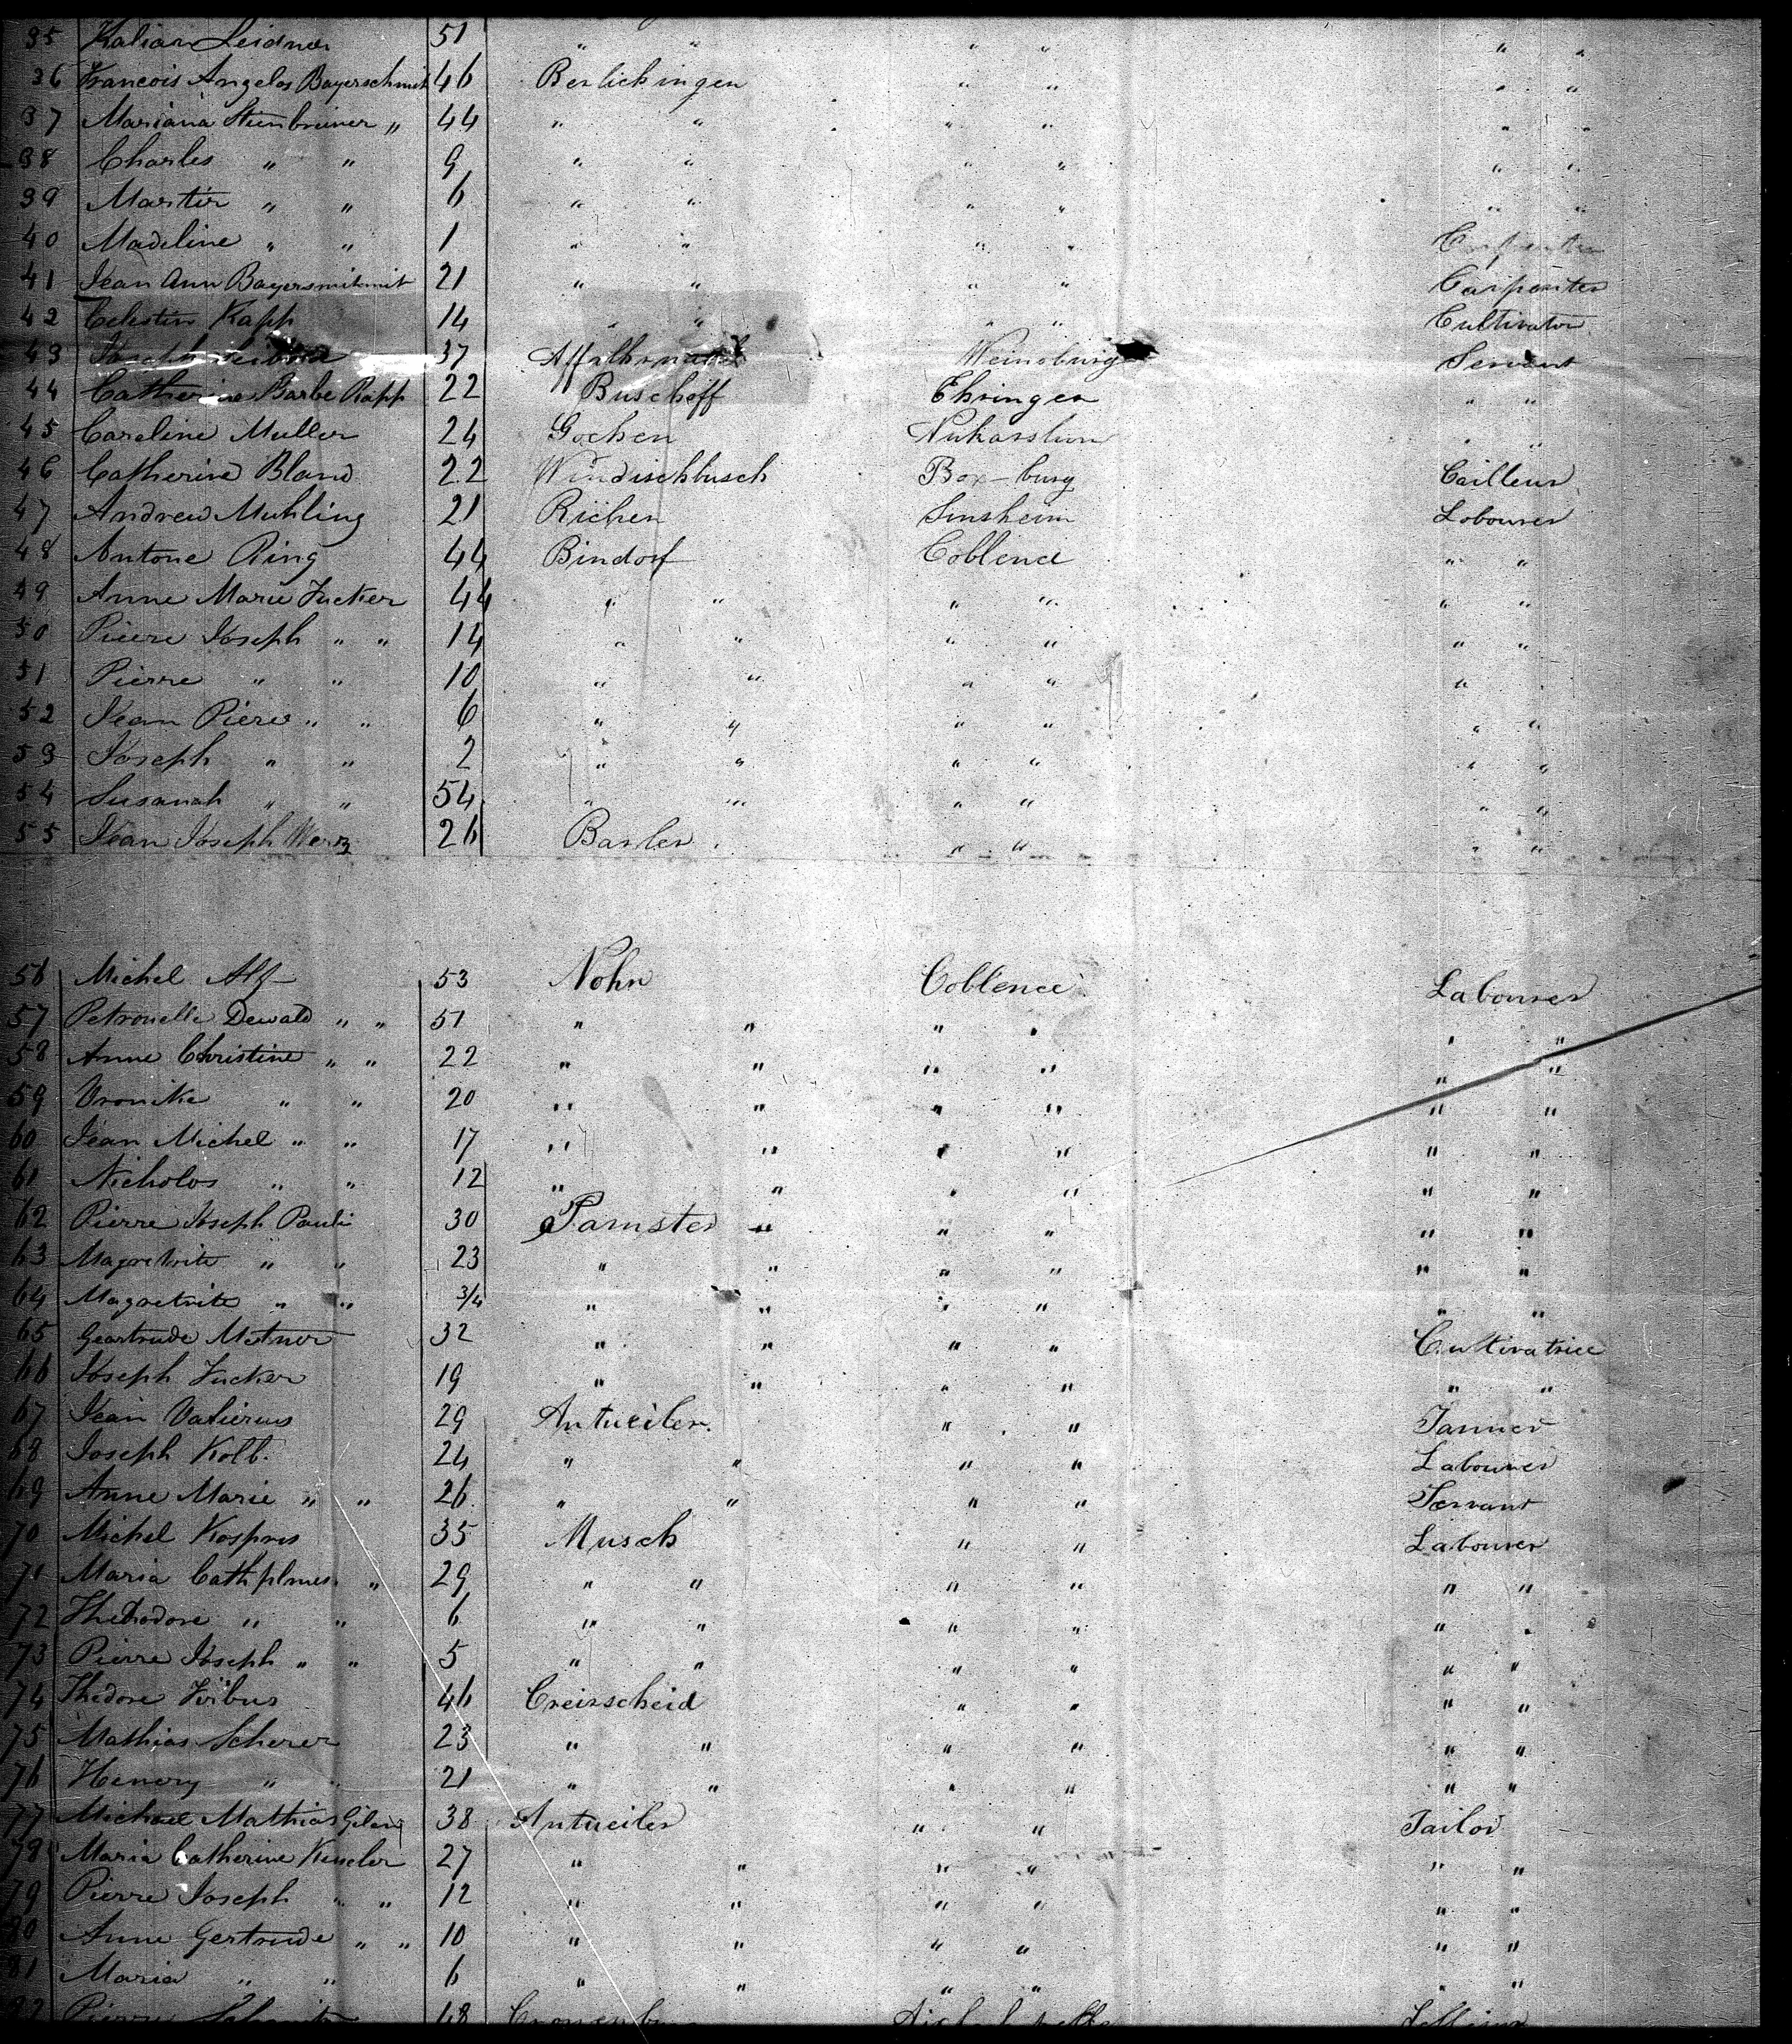 35 Kalian Leidner 51 " " " " " "
36 Francois Angelos Bayerschmit 46 Berlichingen " " " "
37 Mariana Steinbreiner " 44 " " " " " "
38 Charles " " 9 " " " " " "
39 Martin " " 6 " " " " " "
40 Madeline " " 1 " " " "
41 Jean Ann Bayersmitmit 21 " " " " Carpenter
42 Celestin Kapp 14 " " " " Cultivator
43 Joseph 37 Weinsburg Servant
44 Catherine Barbe Rapp 22 Buschoff Ehringen " "
45 Caroline Muller 24 Gochen " "
46 Catherine Bland 22 Windischbusch Box-burg Tailleur
47 Andrew Muhling 21 Richen Sinsheim Labourer
48 Antone Ring 44 Bindorf Coblence " "
49 Anne Marie Jucker 44 " " " " " "
50 Pierre Joseph " " 14 " " " " " "
51 Pierre " " 10 " " " " " "
52 Jean Piere " " 6 " " " " " "
53 Joseph " " 2 " " " " " "
54 Susanah " " 54 " " " " " "
55 Jean Joseph Merz 26 Barler " " " "
56 Michel Alf 53 Nohn Coblence Labourer
57 Petronelle Dewald " " 51 " " " " " "
58 Anne Christine " " 22 " " " " " "
59 Vronike " " 20 " " " " " "
60 Jean Michel " " 17 " " " " " "
61 Nicholos " " 12 " " " " " "
62 Pierre Joseph Pauli 30 Pamster " " " " "
63 Magretrite " " 23 " " " " " "
64 Magretrite " " 3/4 " " " " " "
65 Geartrude Metner 32 " " " " Cultivatrice
66 Joseph Jucker 19 " " " " " "
67 Jean Valierus 29 Antueiler. " " Tanner
68 Joseph Kolb. 24 " " " " Labourer
69 Anne Marie " " 26 " " " " Servant
70 Michel Kospres 35 Musch " " Labourer
71 Maria Cath " 29 " " " " " "
72 Thedodore " " 6 " " " " " "
73 Pierre Joseph " " 5 " " " " " "
74 Thedore 46 Creirscheid " " " "
75 Mathias Scherer 23 " " " " " "
76 Henory " " 21 " " " " " "
77 Michael Mathias 38 Antueiler " " Tailor
78 Maria Catherine Keucler 27 " " " " " "
79 Pierre Joseph " " 12 " " " " " "
80 Anne Gertrude " " 10 " " " " " "
81 Maria " " 6 " " " " " "
82 Pierre 48